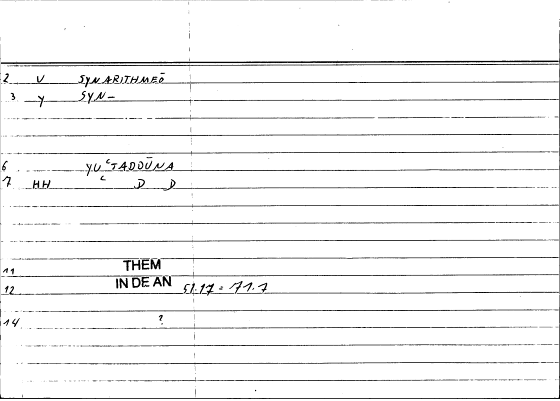 2 V SYNARITHMEŌ
3 Y SYN-
6 YUʿTADDŪNA
7 HH ʿ D D
11 THEM
IN DE AN
12 51.17 = 71.7
14 ?